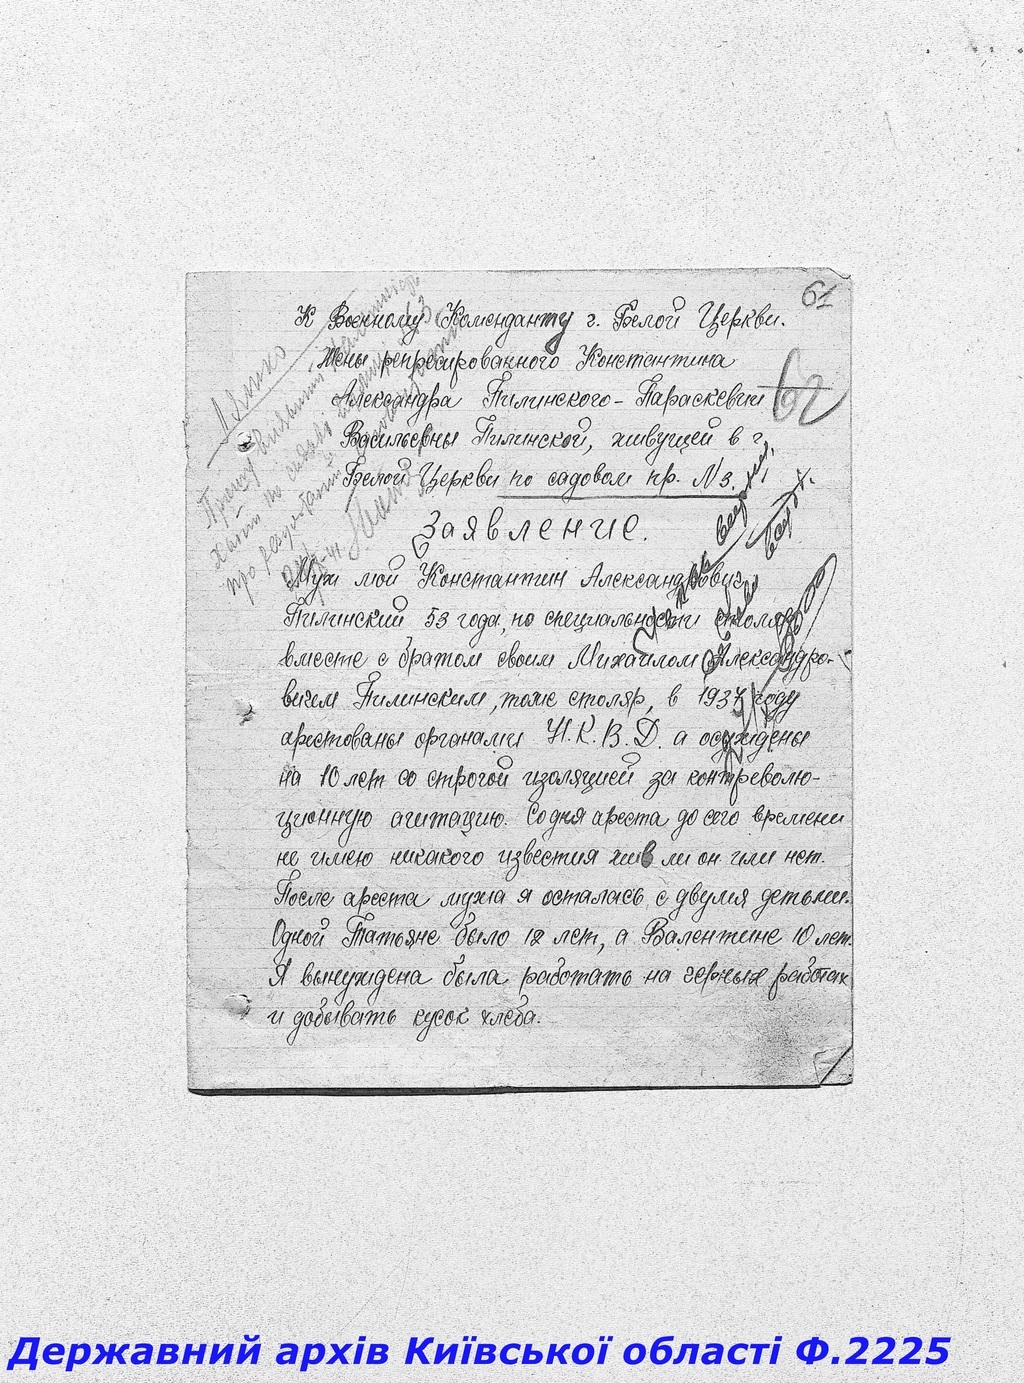 61
62
К Военному Коменданту г. Белой Церкви.
Жены репресированного Константина
Александра Пилинского - Параскевии
Васильевны Пилинской, живущей в г.
Белой Церкви по садовом пр. № 3.
Заявление.
Муж мой Константин Александрович
Пилинский 53 года, по специальности столяр
вместе с братом своим Михаилом Алексадро-
вичем Пилинским, тоже столяр, в 1937 году
арестованы органами Н.К.В.Д. а осуждены
на 10 лет со строгой изоляцией за контреволю-
ционную агитацию. Со дня ареста до сего времени
не имею никакого известия жив ли он или нет.
После ареста мужа я осталась с двумя детьми.
Одной Татьяне было 12 лет, а Валентине 10 лет.
Я вынуждена была работать на черных работах
и добывать кусок хлеба.
Державний архів Київської області Ф.2225